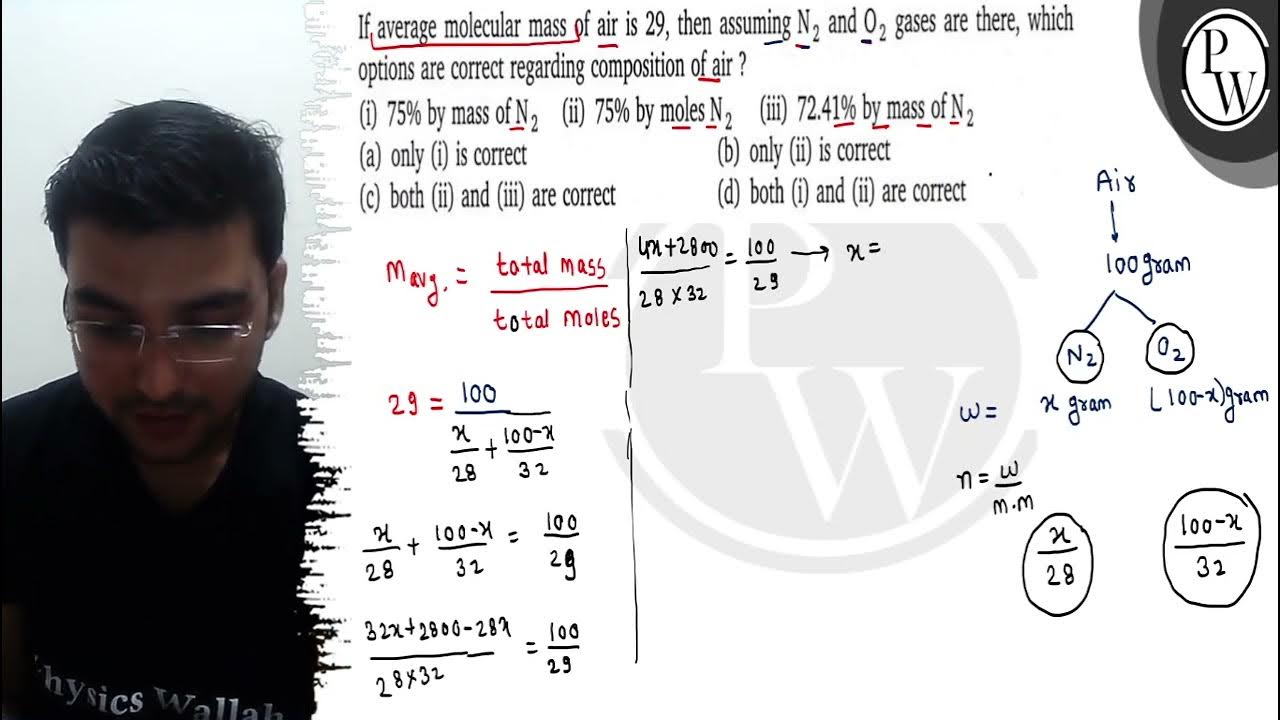 If average molecular mass of air is 29, then assuming N₂ and O₂ gases are there, which
options are correct regarding composition of air ?
(i) 75% by mass of N₂ (ii) 75% by moles N₂ (iii) 72.41% by mass of N₂
(a) only (i) is correct (b) only (ii) is correct
(c) both (ii) and (iii) are correct (d) both (i) and (ii) are correct
PW
Mavg. = total mass / total moles
29 = 100 / (x/28 + (100-x)/32)
x/28 + (100-x)/32 = 100/29
(32x+2800-28x) / (28×32) = 100/29
(4x+2800) / (28×32) = 100/29 → x =
Air
↓
100 gram
N₂ O₂
w = x gram (100-x) gram
n = w/m.m
x/28 (100-x)/32
PW
Physics Wallah